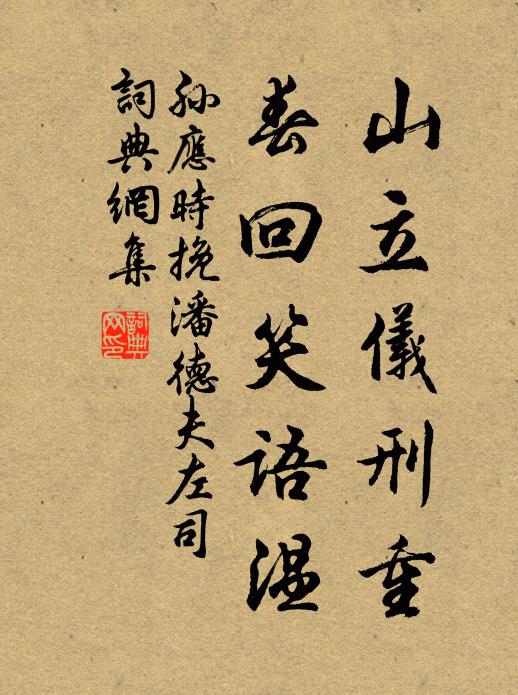 山立儀刑重
春回笑語温
孙應時挽潘德夫左司
詞典網集
詞典
网印